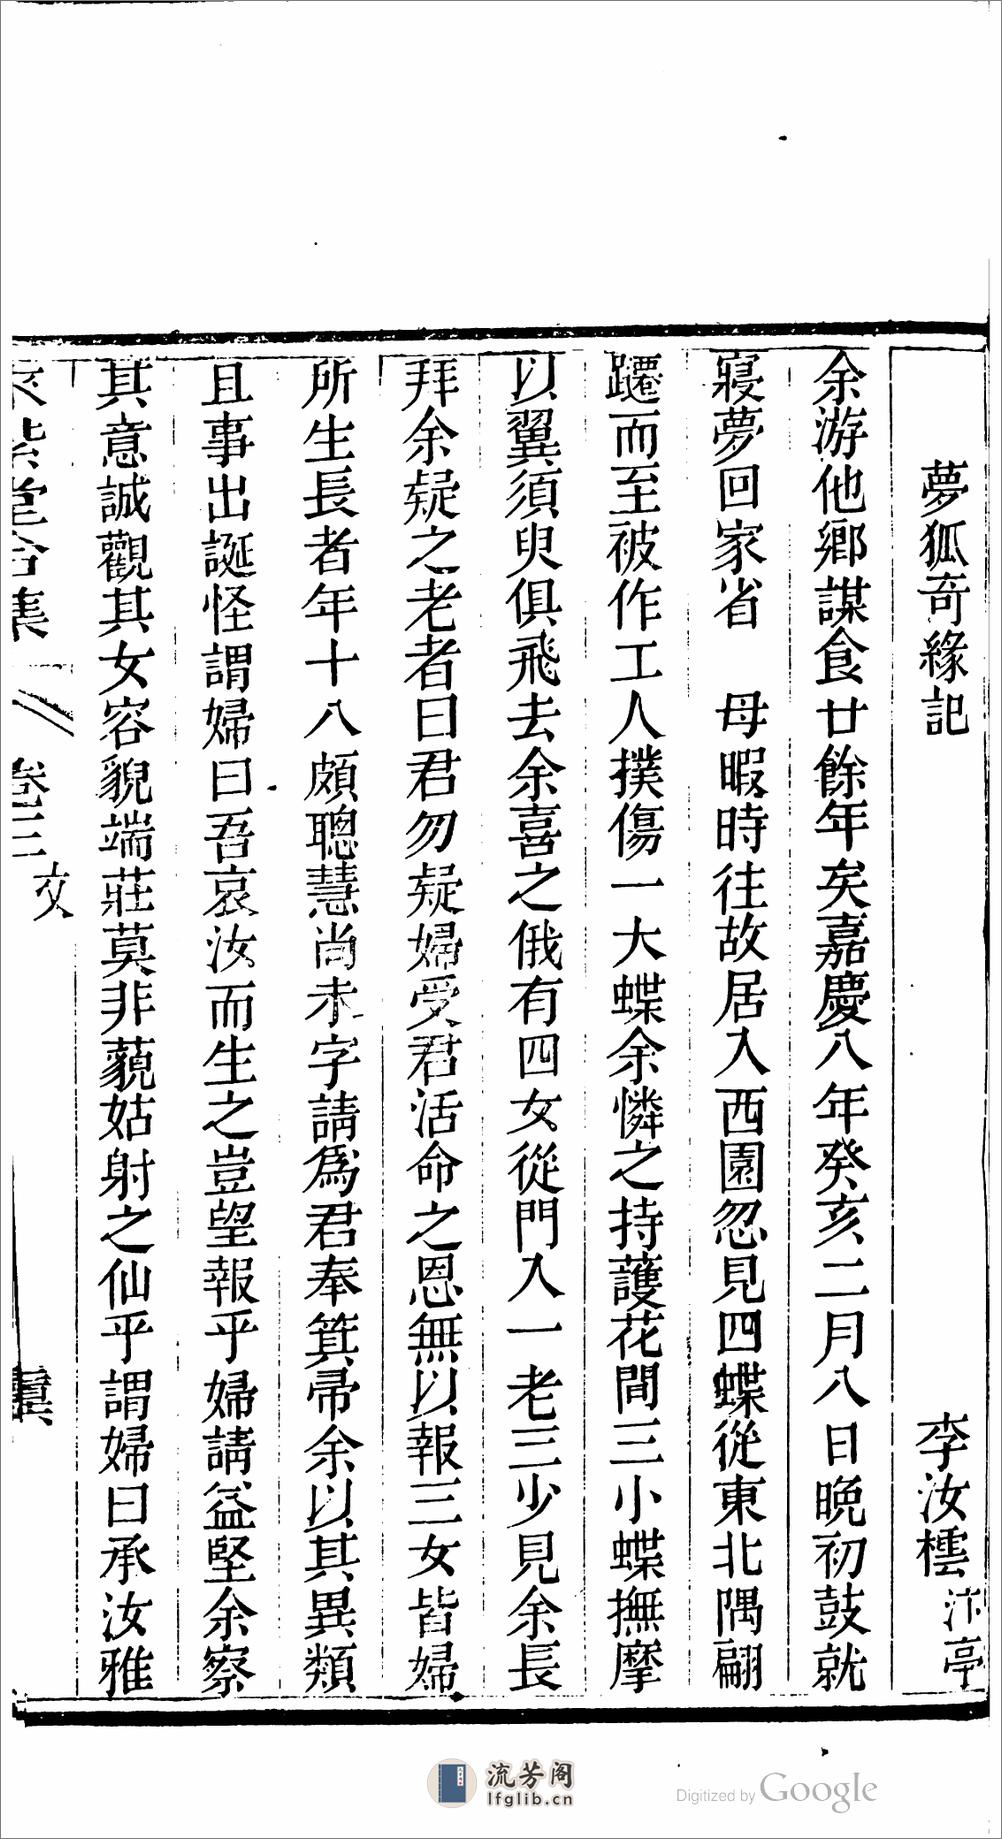 夢狐奇緣記 李汝橒 汴亭
余游他鄉謀食廿餘年矣嘉慶八年癸亥二月八日晚初鼓就
寢夢回家省 母暇時往故居入西園忽見四蝶從東北隅翩
躚而至被作工人撲傷一大蝶余憐之持護花間三小蝶撫摩
以翼須臾俱飛去余喜之俄有四女從門入一老三少見余長
拜余疑之老者曰君勿疑婦受君活命之恩無以報三女皆婦
所生長者年十八頗聰慧尚未字請爲君奉箕帚余以其異類
且事出誕怪謂婦曰吾哀汝而生之豈望報乎婦請益堅余察
其意誠觀其女容貌端莊莫非藐姑射之仙乎謂婦曰承汝雅
堂合集 卷三 文
流芳阁
lfglib.cn
Digitized by Google